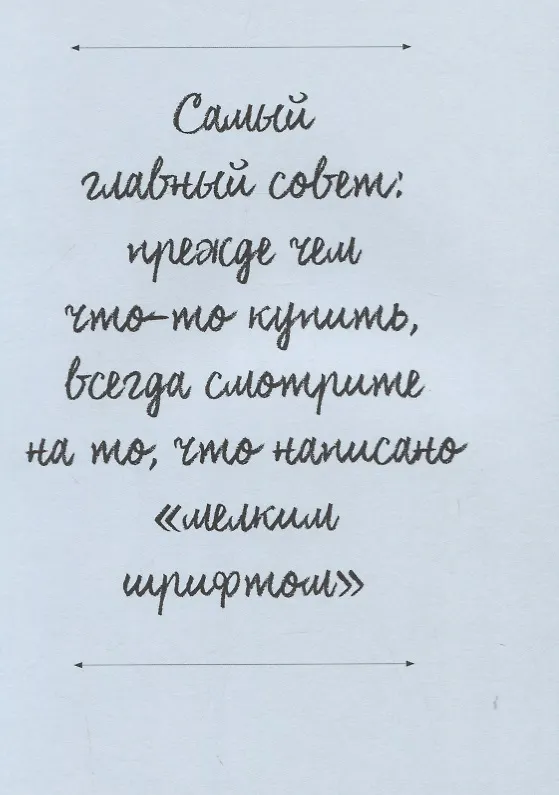 Самый
главный совет:
прежде чем
что-то купить,
всегда смотрите
на то, что написано
«мелким
шрифтом»